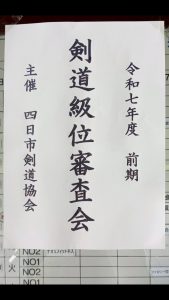 令和七年度　前期
剣道級位審査会
主催　四日市剣道協会
火
NO2
NO1
NO2
NO1
NO2
NO1